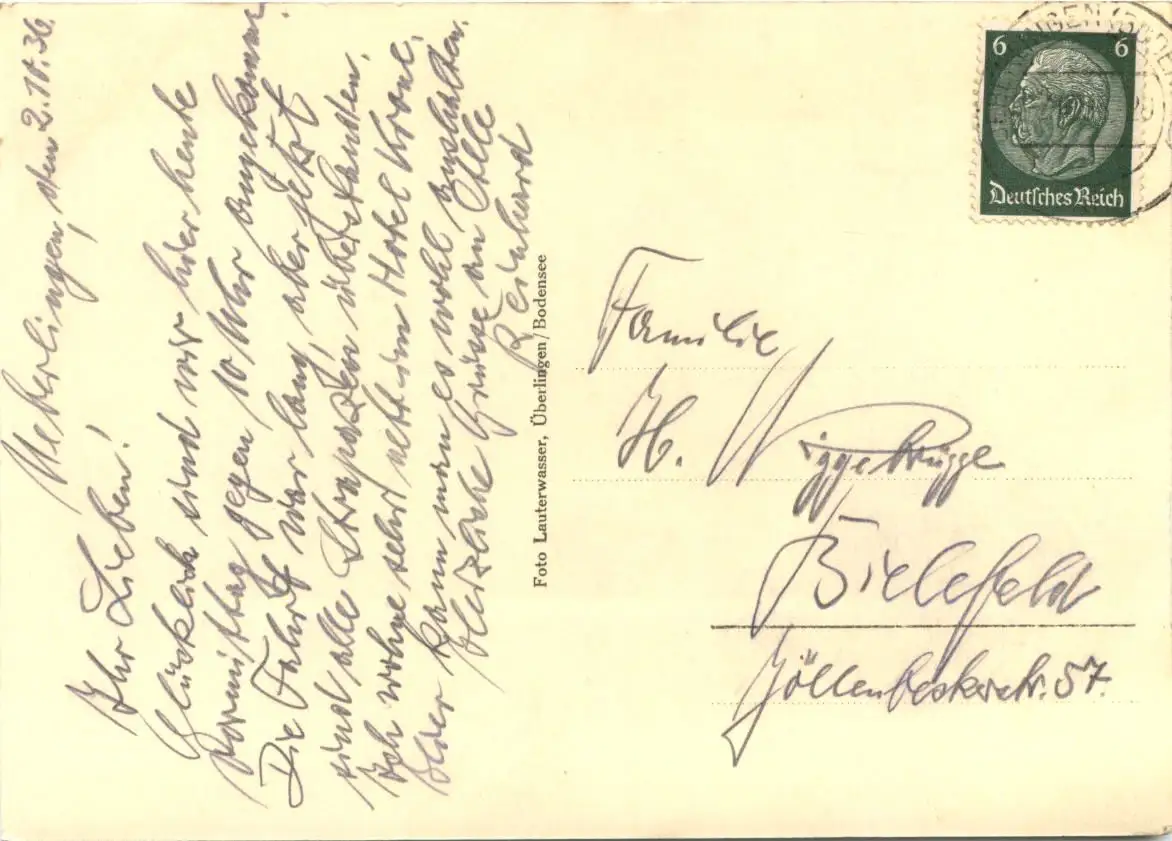 Ueberlingen, den 2.10.36.
Ihr Lieben!
Glücklich sind wir hier heute
Vormittag gegen 10 Uhr angekommen.
Die Fahrt war lang, aber jetzt
sind alle Strapazen überstanden.
Ich wohne sehr nett im Hotel Krone,
hier kann man es wohl aushalten.
Herzliche Grüsse an Alle
Reinhard
Foto Lauterwasser, Überlingen/Bodensee
6 6
Deutsches Reich
Familie
H. Wiggebrügge
Bielefeld
Jöllenbeckerstr. 57.